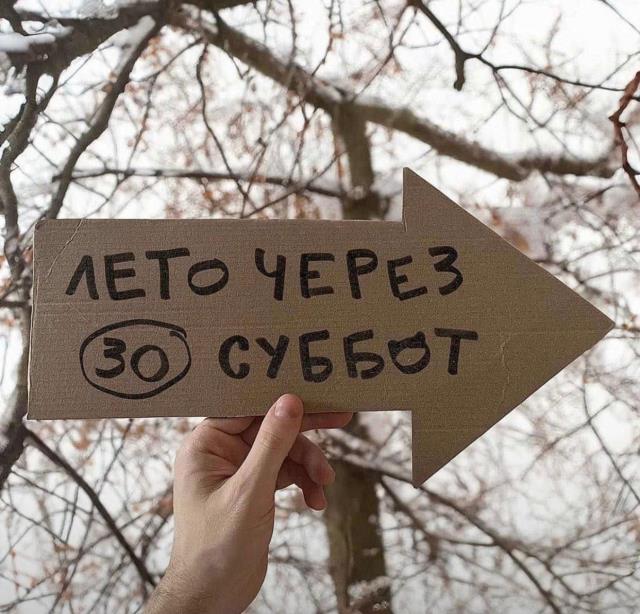 ЛЕТО ЧЕРЕЗ
30 СУББОТ